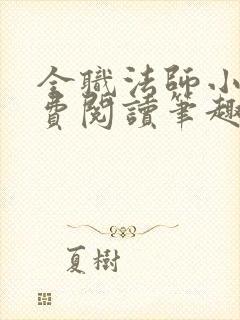 全職法師小
費閱讀筆趣
夏樹